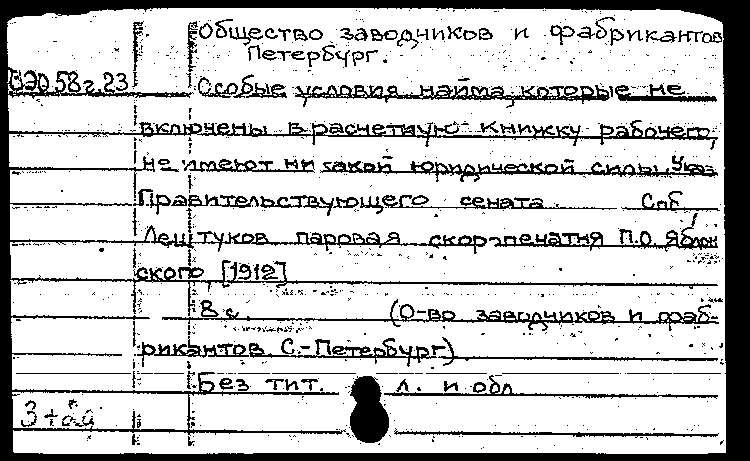 Общество заводчиков и фабрикантов
Петербург.
Особые условия найма, которые не
включены в расчетную книжку рабочего,
не имеют никакой юридической силы. Указ
Правительствующего сената. Спб.,
Лештуков. паровая скоропечатня П.О. Яблон
ского, [1912]
8 с. (О-во заводчиков и фаб-
рикантов. С.-Петербург).
Без тит. л. и обл.